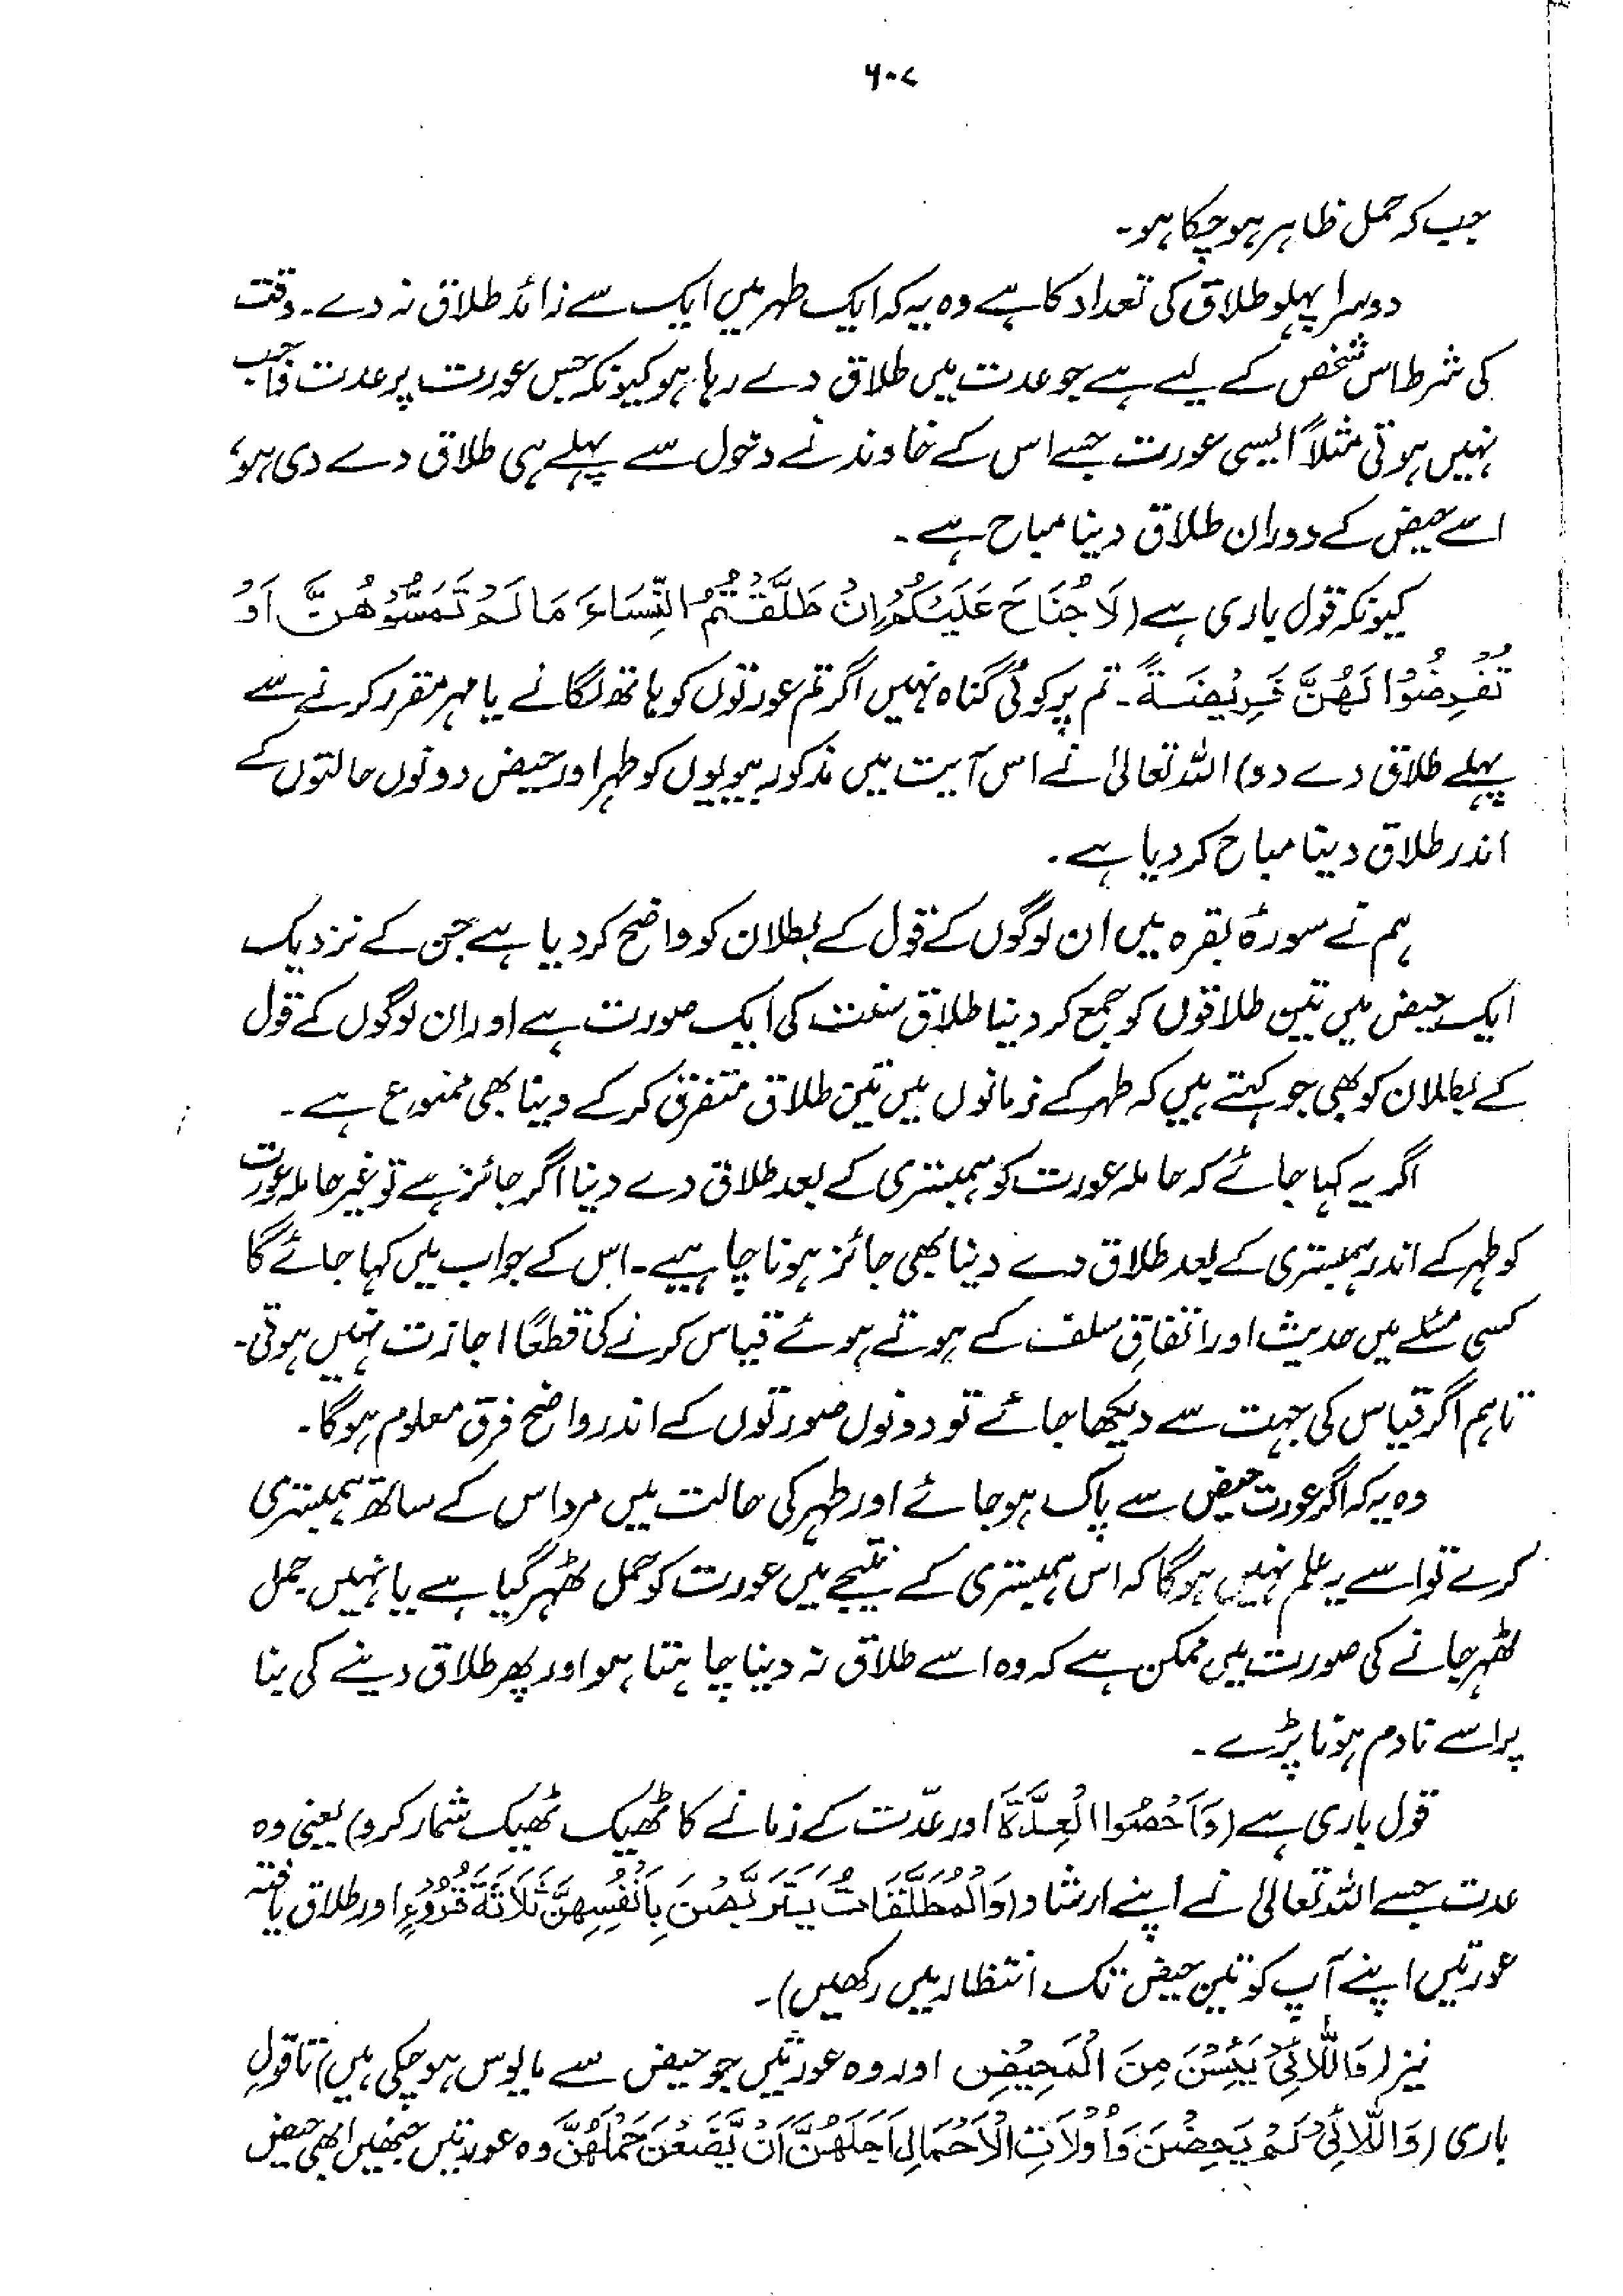 ۶۰۷
جب کہ حمل ظاہر ہو چکا ہو۔
دوسرا پہلو طلاق کی تعداد کا ہے وہ یہ کہ ایک طہر میں ایک سے زائد طلاق نہ دے۔ وقت
کی شرط اس شخص کے لیے ہے جو عدت میں طلاق دے رہا ہو کیونکہ جس عورت پر عدت واجب
نہیں ہوتی مثلاً ایسی عورت جسے اس کے خاوند نے دخول سے پہلے ہی طلاق دے دی ہو،
اسے حیض کے دوران طلاق دینا مباح ہے۔
کیونکہ قول باری ہے (لَا جُنَاحَ عَلَيْكُمْ اِنْ طَلَّقْتُمُ النِّسَاءَ مَا لَمْ تَمَسُّوْهُنَّ اَوْ
تَفْرِضُوْا لَهُنَّ فَرِيْضَةً۔ تم پر کوئی گناہ نہیں اگر تم عورتوں کو ہاتھ لگانے یا مہر مقرر کرنے سے
پہلے طلاق دے دو) اللہ تعالیٰ نے اس آیت میں مذکورہ بیویوں کو طہر اور حیض دونوں حالتوں کے
اندر طلاق دینا مباح کر دیا ہے۔
ہم نے سورۂ بقرہ میں ان لوگوں کے قول کے بطلان کو واضح کر دیا ہے جن کے نزدیک
ایک حیض میں تین طلاقوں کو جمع کر دینا طلاق سنت کی ایک صورت ہے اور ان لوگوں کے قول
کے بطلان کو بھی جو کہتے ہیں کہ طہر کے زمانوں میں تین طلاق متفرق کر کے دینا بھی ممنوع ہے۔
اگر یہ کہا جائے کہ حاملہ عورت کو ہمبستری کے بعد طلاق دے دینا اگر جائز ہے تو غیر حاملہ عورت
کو طہر کے اندر ہمبستری کے بعد طلاق دے دینا بھی جائز ہونا چاہیے۔ اس کے جواب میں کہا جائے گا
کسی مسئلے میں حدیث اور اتفاقِ سلف کے ہوتے ہوئے قیاس کرنے کی قطعاً اجازت نہیں ہوتی۔
تاہم اگر قیاس کی جہت سے دیکھا جائے تو دونوں صورتوں کے اندر واضح فرق معلوم ہوگا۔
وہ یہ کہ اگر عورت حیض سے پاک ہو جائے اور طہر کی حالت میں مرد اس کے ساتھ ہمبستری
کرے تو اسے یہ علم نہیں ہوگا کہ اس ہمبستری کے نتیجے میں عورت کو حمل ٹھہر گیا ہے یا نہیں۔ حمل
ٹھہر جانے کی صورت میں ممکن ہے کہ وہ اسے طلاق نہ دینا چاہتا ہو اور پھر طلاق دینے کی بنا
پر اسے نادم ہونا پڑے۔
قول باری ہے (وَاَحْصُوا الْعِدَّةَ اور عدّت کے زمانے کا ٹھیک ٹھیک شمار کرو) یعنی وہ
عدت جسے اللہ تعالیٰ نے اپنے ارشاد (وَالْمُطَلَّقَاتُ يَتَرَبَّصْنَ بِاَنْفُسِهِنَّ ثَلَاثَةَ قُرُوْءٍ اور طلاق یافتہ
عورتیں اپنے آپ کو تین حیض تک انتظار میں رکھیں)۔
نیز (وَاللَّائِيْ يَئِسْنَ مِنَ الْمَحِيْضِ اور وہ عورتیں جو حیض سے مایوس ہو چکی ہیں) تا قولِ
باری (وَاللَّائِيْ لَمْ يَحِضْنَ وَاُولَاتِ الْاَحْمَالِ اَجَلَهُنَّ اَنْ يَّضَعْنَ حَمْلَهُنَّ وہ عورتیں جنھیں ابھی حیض